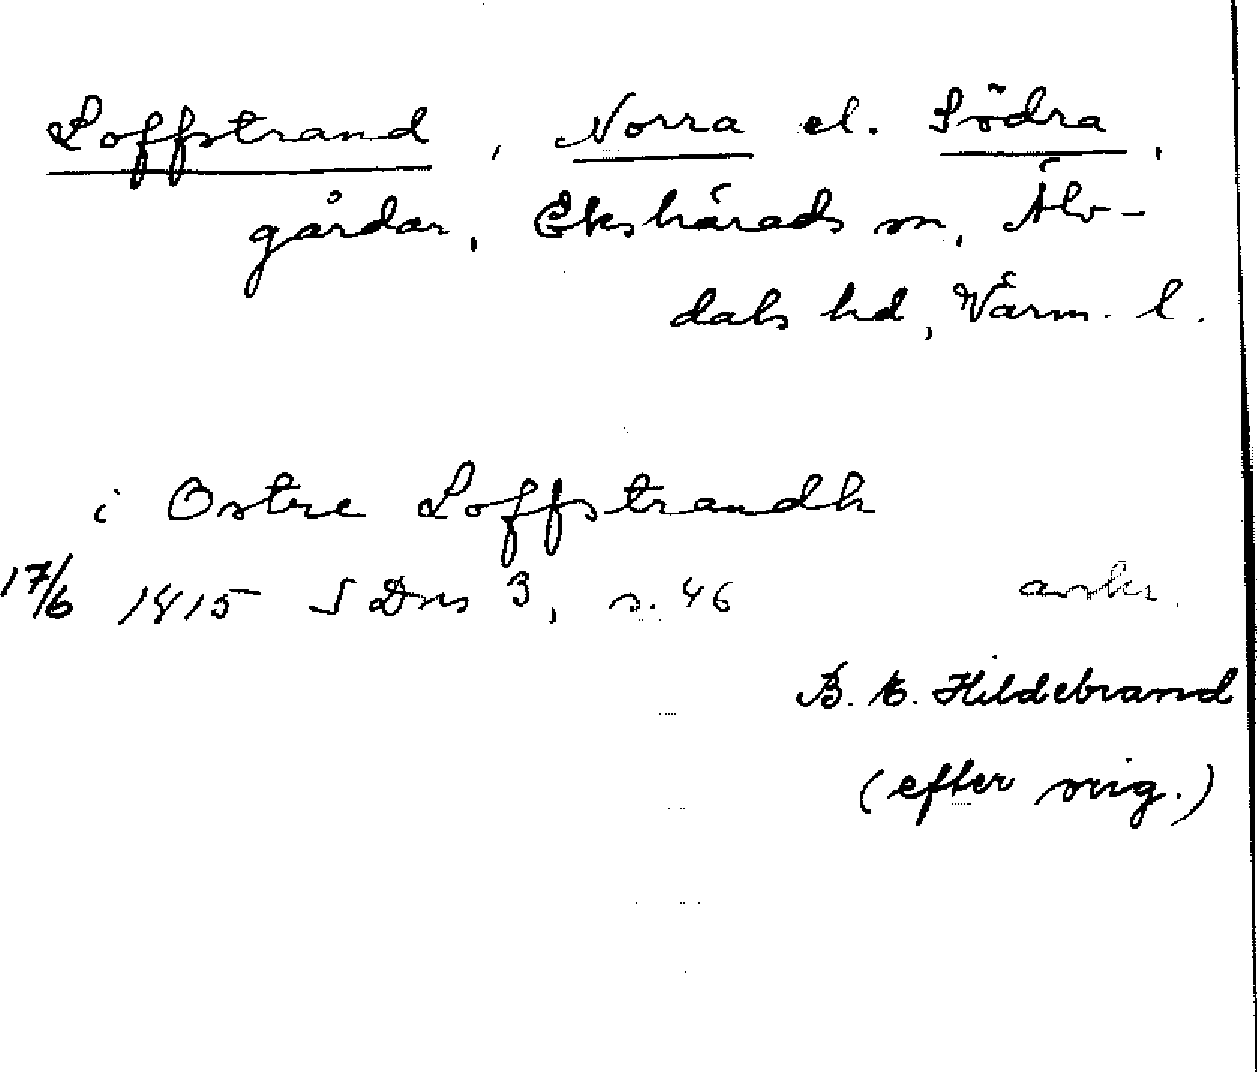 Loffstrand, Norra el. Södra,
gårdar, Ekshärads sn, Älv-
dals hd, Värm. l.
i Ostre Loffstrandh
17/6 1415 SDns 3, s. 46 avskr.
B. E. Hildebrand
(efter orig.)